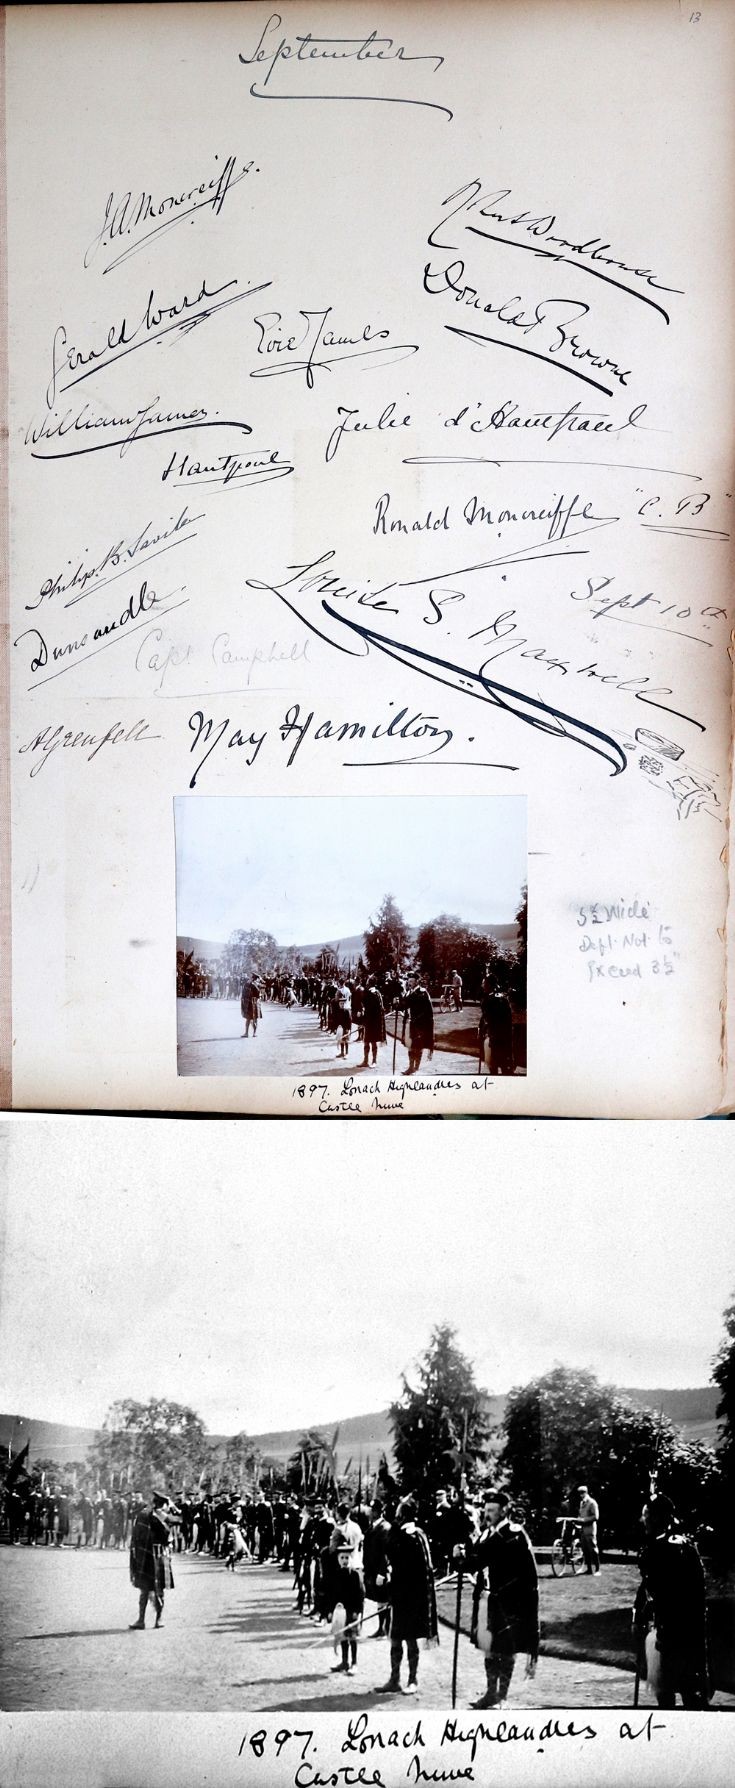 13
September
J.A. Moncreiffe.
Woodhouse
Gerald Ward.
Donald Browne
Evie James
William James.
Julie d'Hautpoul
Hautpoul
Ronald Moncreiffe "C.B"
Philip. B. Savile
Sept 10th
Dunsandle.
Louise S. Maxwell
Capt Campbell
AGrenfell
May Hamilton.
Wide
Dept. Not to
Exceed 3½"
1897. Lonach Highlanders at
Castle Newe
1897. Lonach Highlanders at
Castle Newe